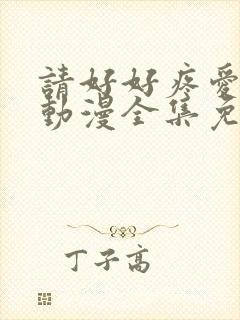 請好好疼愛
動漫全集免
丁子高